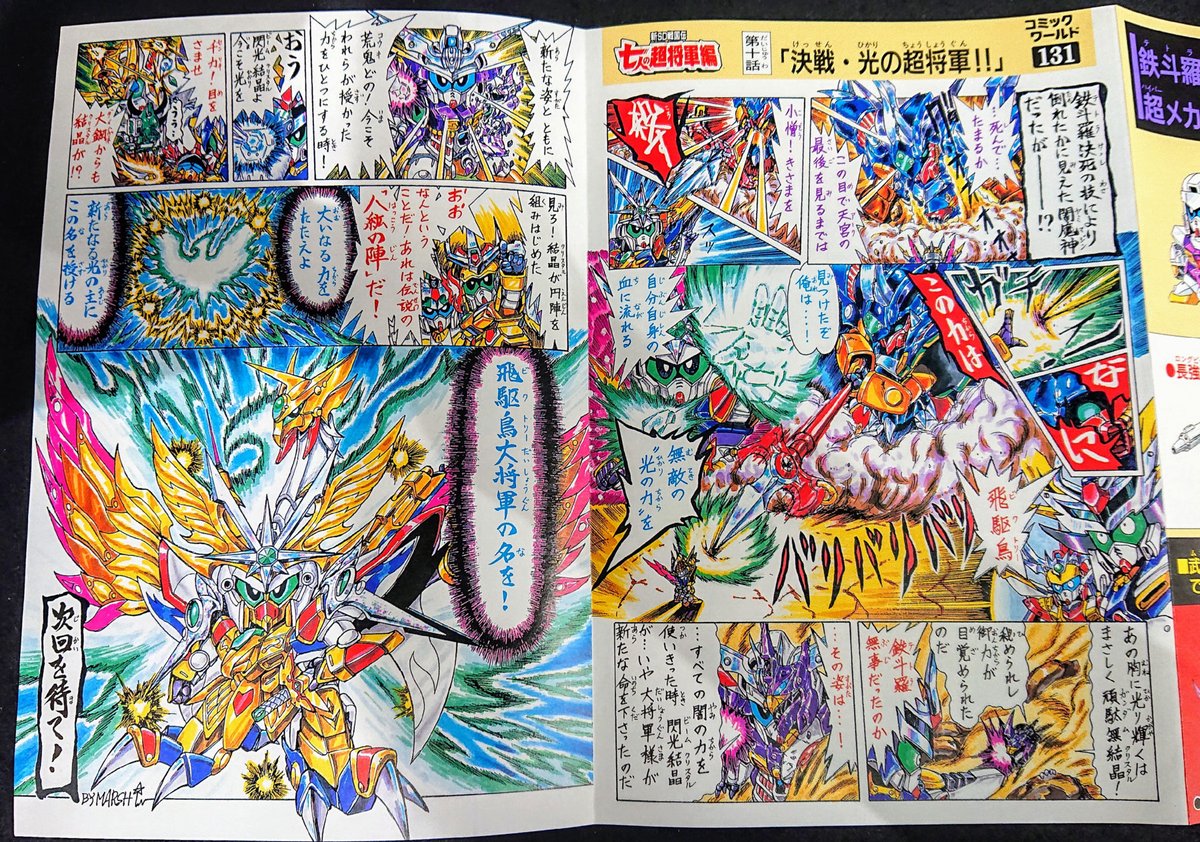 コミック
ワールド
131
新SD戦国伝
七人の超将軍編
第十話
「決戦・光の超将軍!!」
鉄斗羅決死の技により
倒れたかに見えた闇魔神
だったが――!?
…死んで…
たまるか
この目で天宮の
最後を見るまでは
小僧！きさまを
ガチ
なに
この力は
見つけたぞ
俺は…！
自分自身の
血に流れる
無敵の
“光の力”を
バリバリバリ
飛駆鳥
あの胸に光り輝くは
まさしく頑駄無結晶！
秘められし
御力が
目覚められた
のだ
鉄斗羅
無事だったのか
…その姿は…！
…すべての闇の力を
使いきった時 閃光結晶
が…いや 大将軍様が
新たな命を下さったのだ
新たな姿とともに
荒鬼どの！今こそ
われらが授かった
力をひとつにする時！
おう
閃光結晶よ
今こそ光を
千力！目を
さませ
うぅ…
大鋼からも
結晶が!?
見ろ！結晶が円陣を
組みはじめた
おお
なんという
ことだ！あれは伝説の
「八紘の陣」だ！
大いなる力を
たたえよ
新たなる光の主に
この名を授ける
飛駆鳥大将軍の名を！
次回を待て！
BY MARSH
鉄斗羅
超メカ
●長強